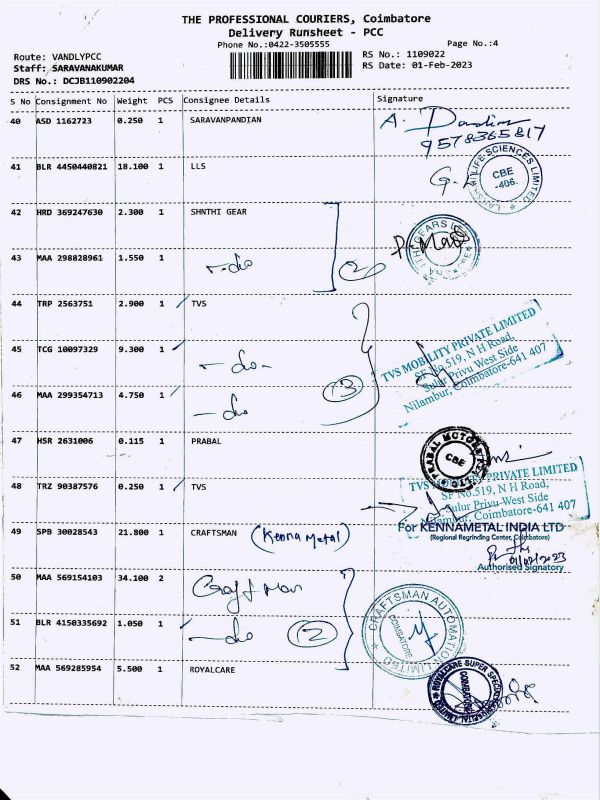 THE PROFESSIONAL COURIERS, Coimbatore
Delivery Runsheet - PCC
Phone No.:0422-3505555
Page No.:4
Route: VANDLYPCC
RS No.: 1109022
Staff: SARAVANAKUMAR
RS Date: 01-Feb-2023
DRS No.: DCJB110902204
S No Consignment No Weight PCS Consignee Details Signature
40 ASD 1162723 0.250 1 SARAVANPANDIAN A.
9578365817
41 BLR 4450440821 18.100 1 LLS G.
LIFE SCIENCES LIMITED
CBE
-406.
42 HRD 369247630 2.300 1 SHNTHI GEAR
43 MAA 298828961 1.550 1 -do 2
44 TRP 2563751 2.900 1 TVS
TVS MOBILITY PRIVATE LIMITED
SF No.519, N H Road,
Sulur Privu West Side
Nilambur, Coimbatore-641 407
45 TCG 10097329 9.300 1 -do-
46 MAA 299354713 4.750 1 -do 3
47 HSR 2631006 0.115 1 PRABAL
PRABAL MOTORS
CBE
48 TRZ 90387576 0.250 1 TVS
TVS MOBILITY PRIVATE LIMITED
SF No.519, N H Road,
Sulur Privu West Side
Nilambur, Coimbatore-641 407
49 SPB 30028543 21.800 1 CRAFTSMAN (Kenna Metal)
For KENNAMETAL INDIA LTD
(Regional Regrinding Center, Coimbatore)
01/02/2023
Authorised Signatory
50 MAA 569154103 34.100 2 Craftman
51 BLR 4150335692 1.050 1 -do 2
CRAFTSMAN AUTOMATION LIMITED
COIMBATORE
52 MAA 569285954 5.500 1 ROYALCARE
ROYALCARE SUPER SPECIALITY HOSPITAL LIMITED
COIMBATORE